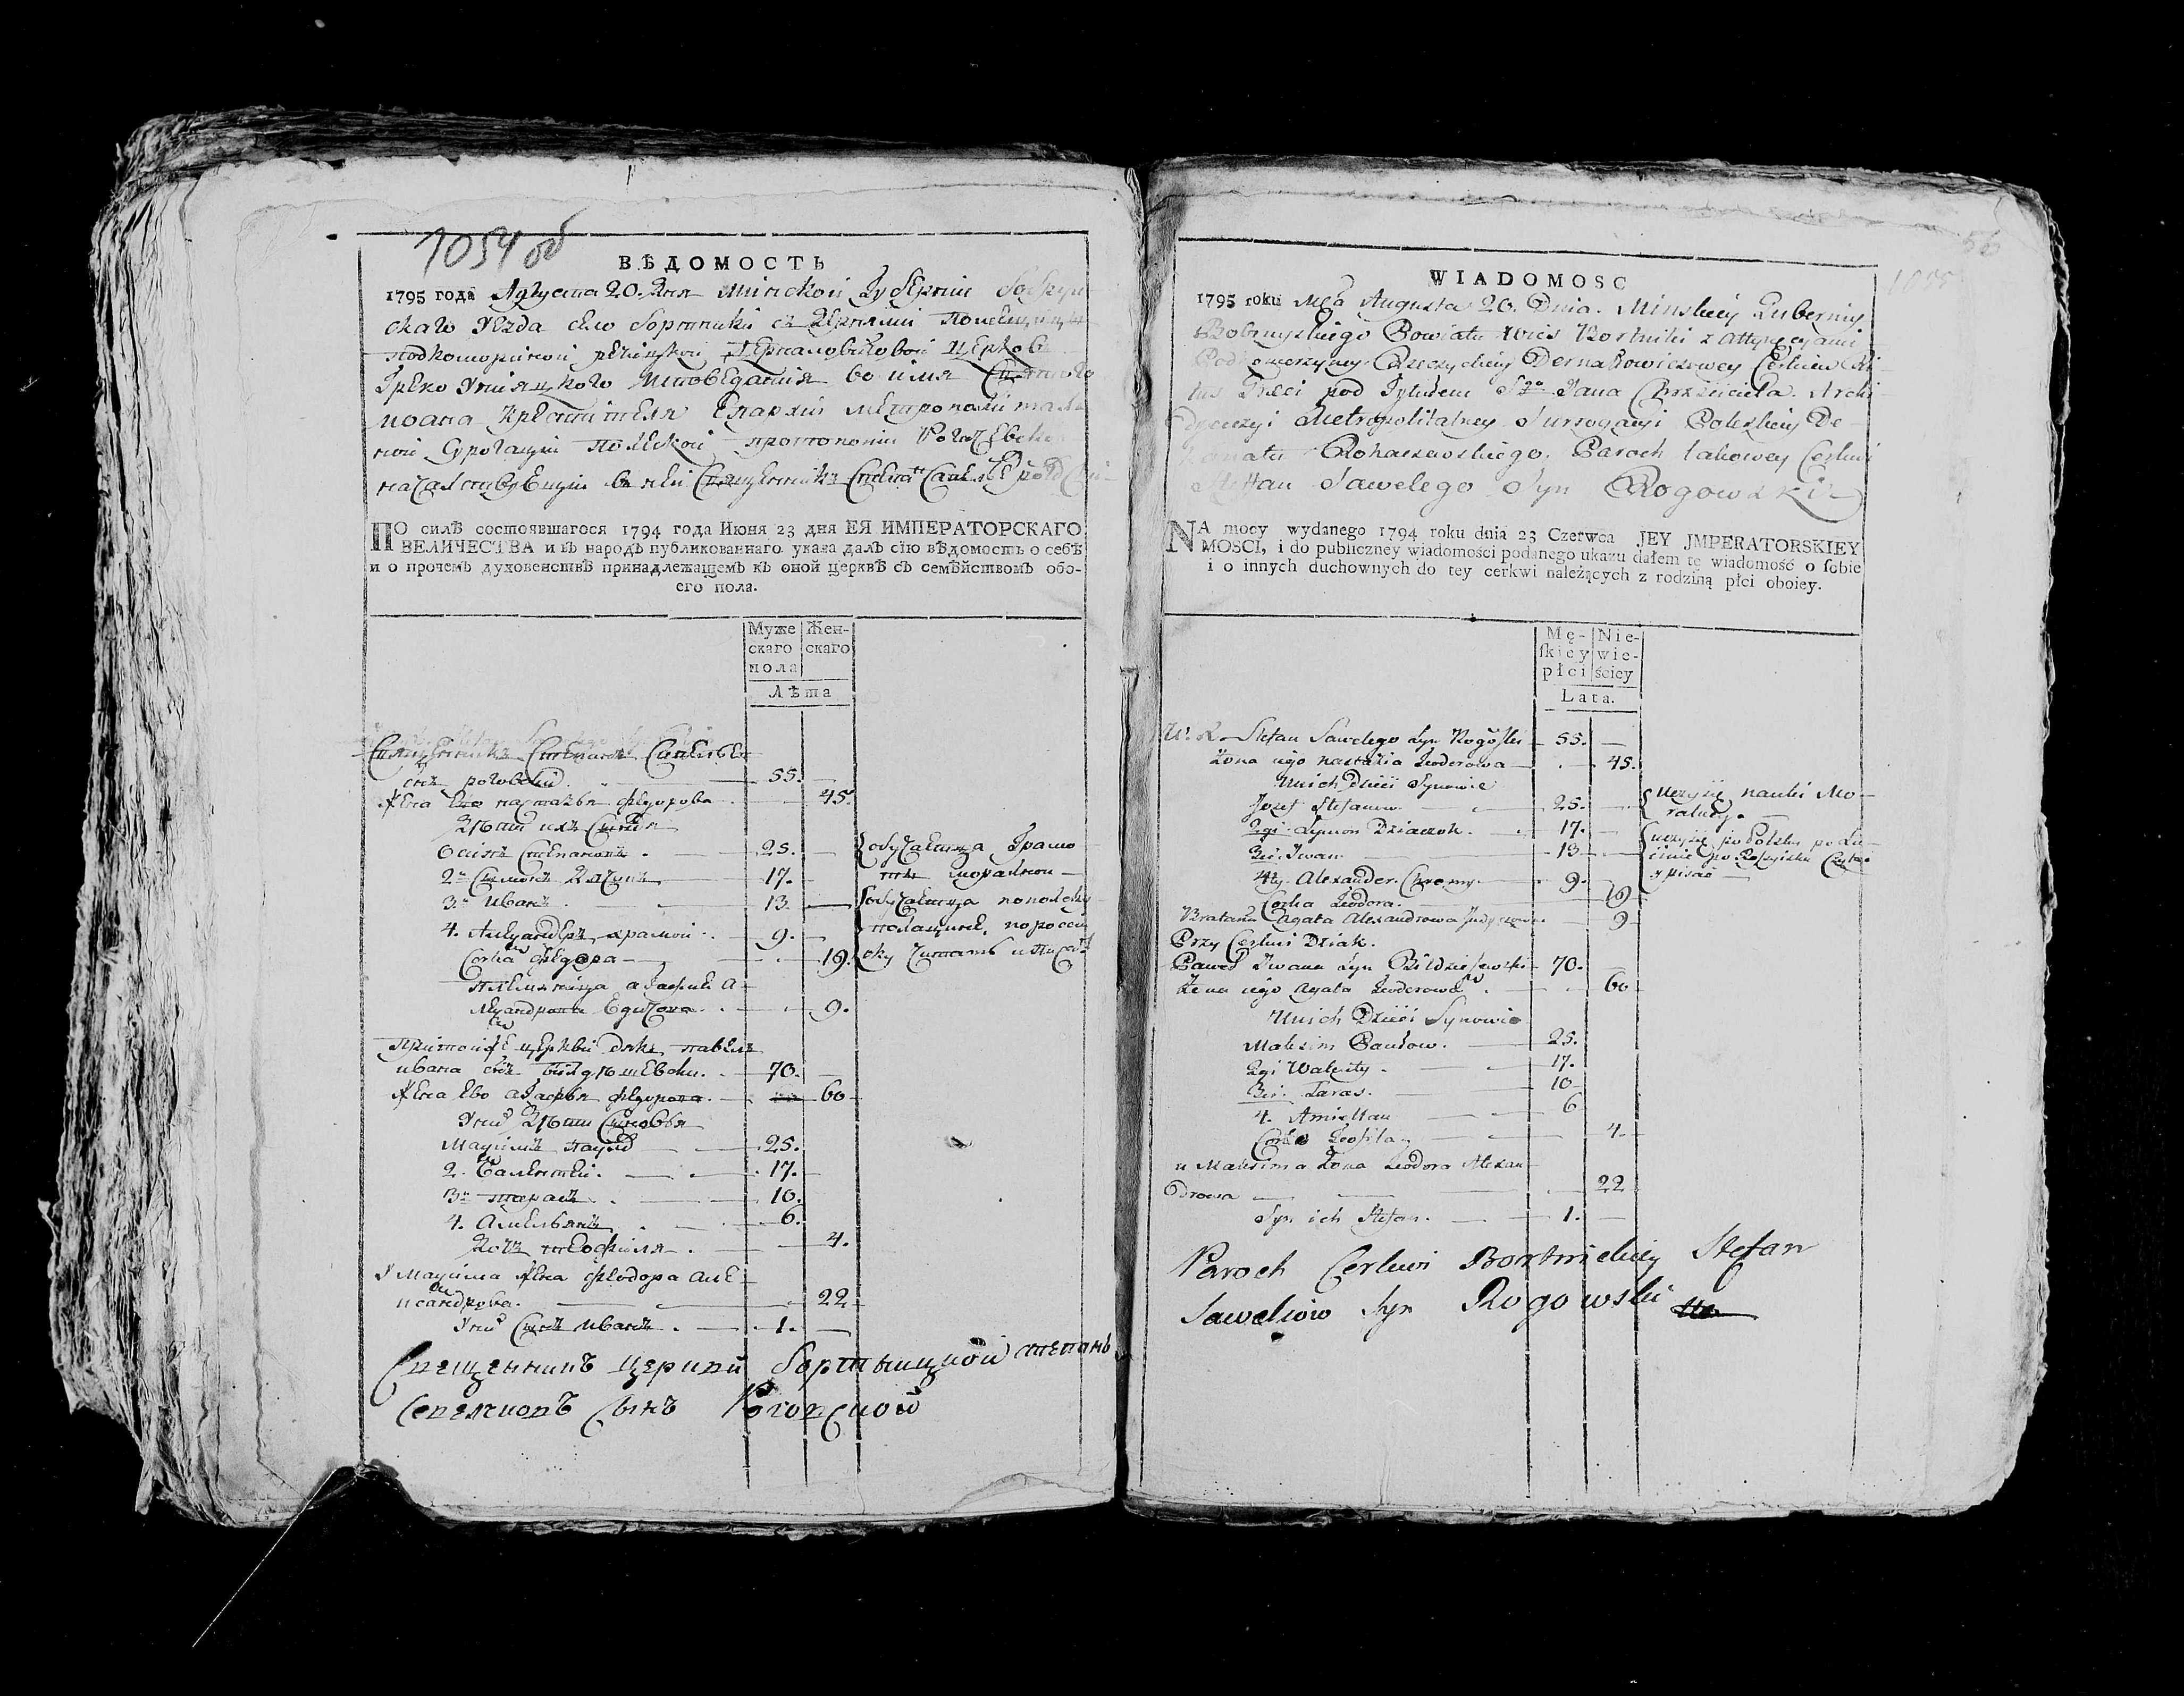 1054 об
ВѢДОМОСТЬ
1795 года Августа 20. Дня Минской Губернии Бобруй-
скаго Уезда село Бортники съ деревнями Помещицы
подкомориной речицкой Церковь
Греко Униацкого Исповедания во имя Святого
Иоана Крестителя Епархии Митрополитал
ной Сурогации Полеской протопопии Рогачевско
началствующи в ней Священникъ Степанъ Савел
ПО силѣ состоявшагося 1794 года Июня 23 дня ЕЯ ИМПЕРАТОРСКАГО
ВЕЛИЧЕСТВА и въ народъ публикованнаго указа далъ сію вѣдомость о себѣ
и о прочемъ духовенствѣ принадлежащемъ къ оной церквѣ съ семѣйствомъ обо-
его пола.
Муже
скаго
пола
Жен-
скаго
Лѣта
Священникъ Степанъ Савельев
сынъ роговский 55.
Жена Ево настазья федорова 45.
Дѣти ихъ
Осипъ Степановъ 25. обучаетца Грамо
те моралной
2й Симонъ Дьячокъ 17.
3й Иванъ 13. обучаетца пополску
полацине, поросси
4. Александеръ хромой 9.
ску читать и писать
Дочка федора 19.
племяница агафия А-
лександрова 9.
При той же церкви дякъ павелъ
ивана сынъ 70.
Жена ево агафья федорова 60
У них Дѣти Сыновья
Максимъ павлов 25.
2. Валентей. 17.
3й тарасъ 10.
4. Амельянъ 6.
Дочь теофиля 4.
У Максима Жена федора але
ксандрова. 22
У них Сынъ иванъ 1.
Свещенникъ церкви Бортницкой степанъ
Савелиовъ Сынъ Роговской
56
1055
WIADOMOSC
1795 roku Mca Augusta 20. Dnia. Minskiey Guberniy
Bobruyskiego Powiatu Wies Bortniki z Attynecyami
Podkomorzyney Rzeczyckiey Dernałowiczowey Cerkiew Ri
tus Græci pod Tytułem Sgo Jana Chrzciciela. Archi
Dyecezyi Metropolitalney Surrogacyi Poleskiey De-
kanatu Rohaczewskiego. Paroch takowey Cerkwi
Stefan Sawelego Syn Rogowski
NA mocy wydanego 1794 roku dnia 23 Czerwca JEY JMPERATORSKIEY
MOSCI, i do publiczney wiadomości podanego ukazu dałem tę wiadomość o sobie
i o innych duchownych do tey cerkwi należących z rodziną płci oboiey.
Mę-
skiey
płci
Nie-
wie-
ściey
Lata.
W. X. Stefan Sawelego Syn Rogowski 55.
Zona iego Nastazia Teodorowa 45.
Unich Dzieci Synowie
Jozef Stefanow 25. uczysię nauki Mo-
ralney.
2gi. Symon Dziaczok. 17.
3ci. Iwan 13 uczysię poPolsku poŁa-
cinie poRossyisku Czytac
y pisac
4ty. Alexander Chromy 9.
Corka Teodora. 19
Bratanka Agata Alexandrowa 9
Przy Cerkwi Dziak.
Paweł Iwana Syn 70.
Zona iego Agata Teodorowa 60
Unich Dzieci Synowie
Maksim Pawłow. 25.
2gi Walenty 17.
3ci. Taras. 10
4. Amiellan 6
Corka Teofila 4.
u Maksima Zona Teodora Alexan-
drowa 22
Syn ich Stefan. 1.
Paroch Cerkwi Bortnickiey Stefan
Saweliow Syn Rogowski